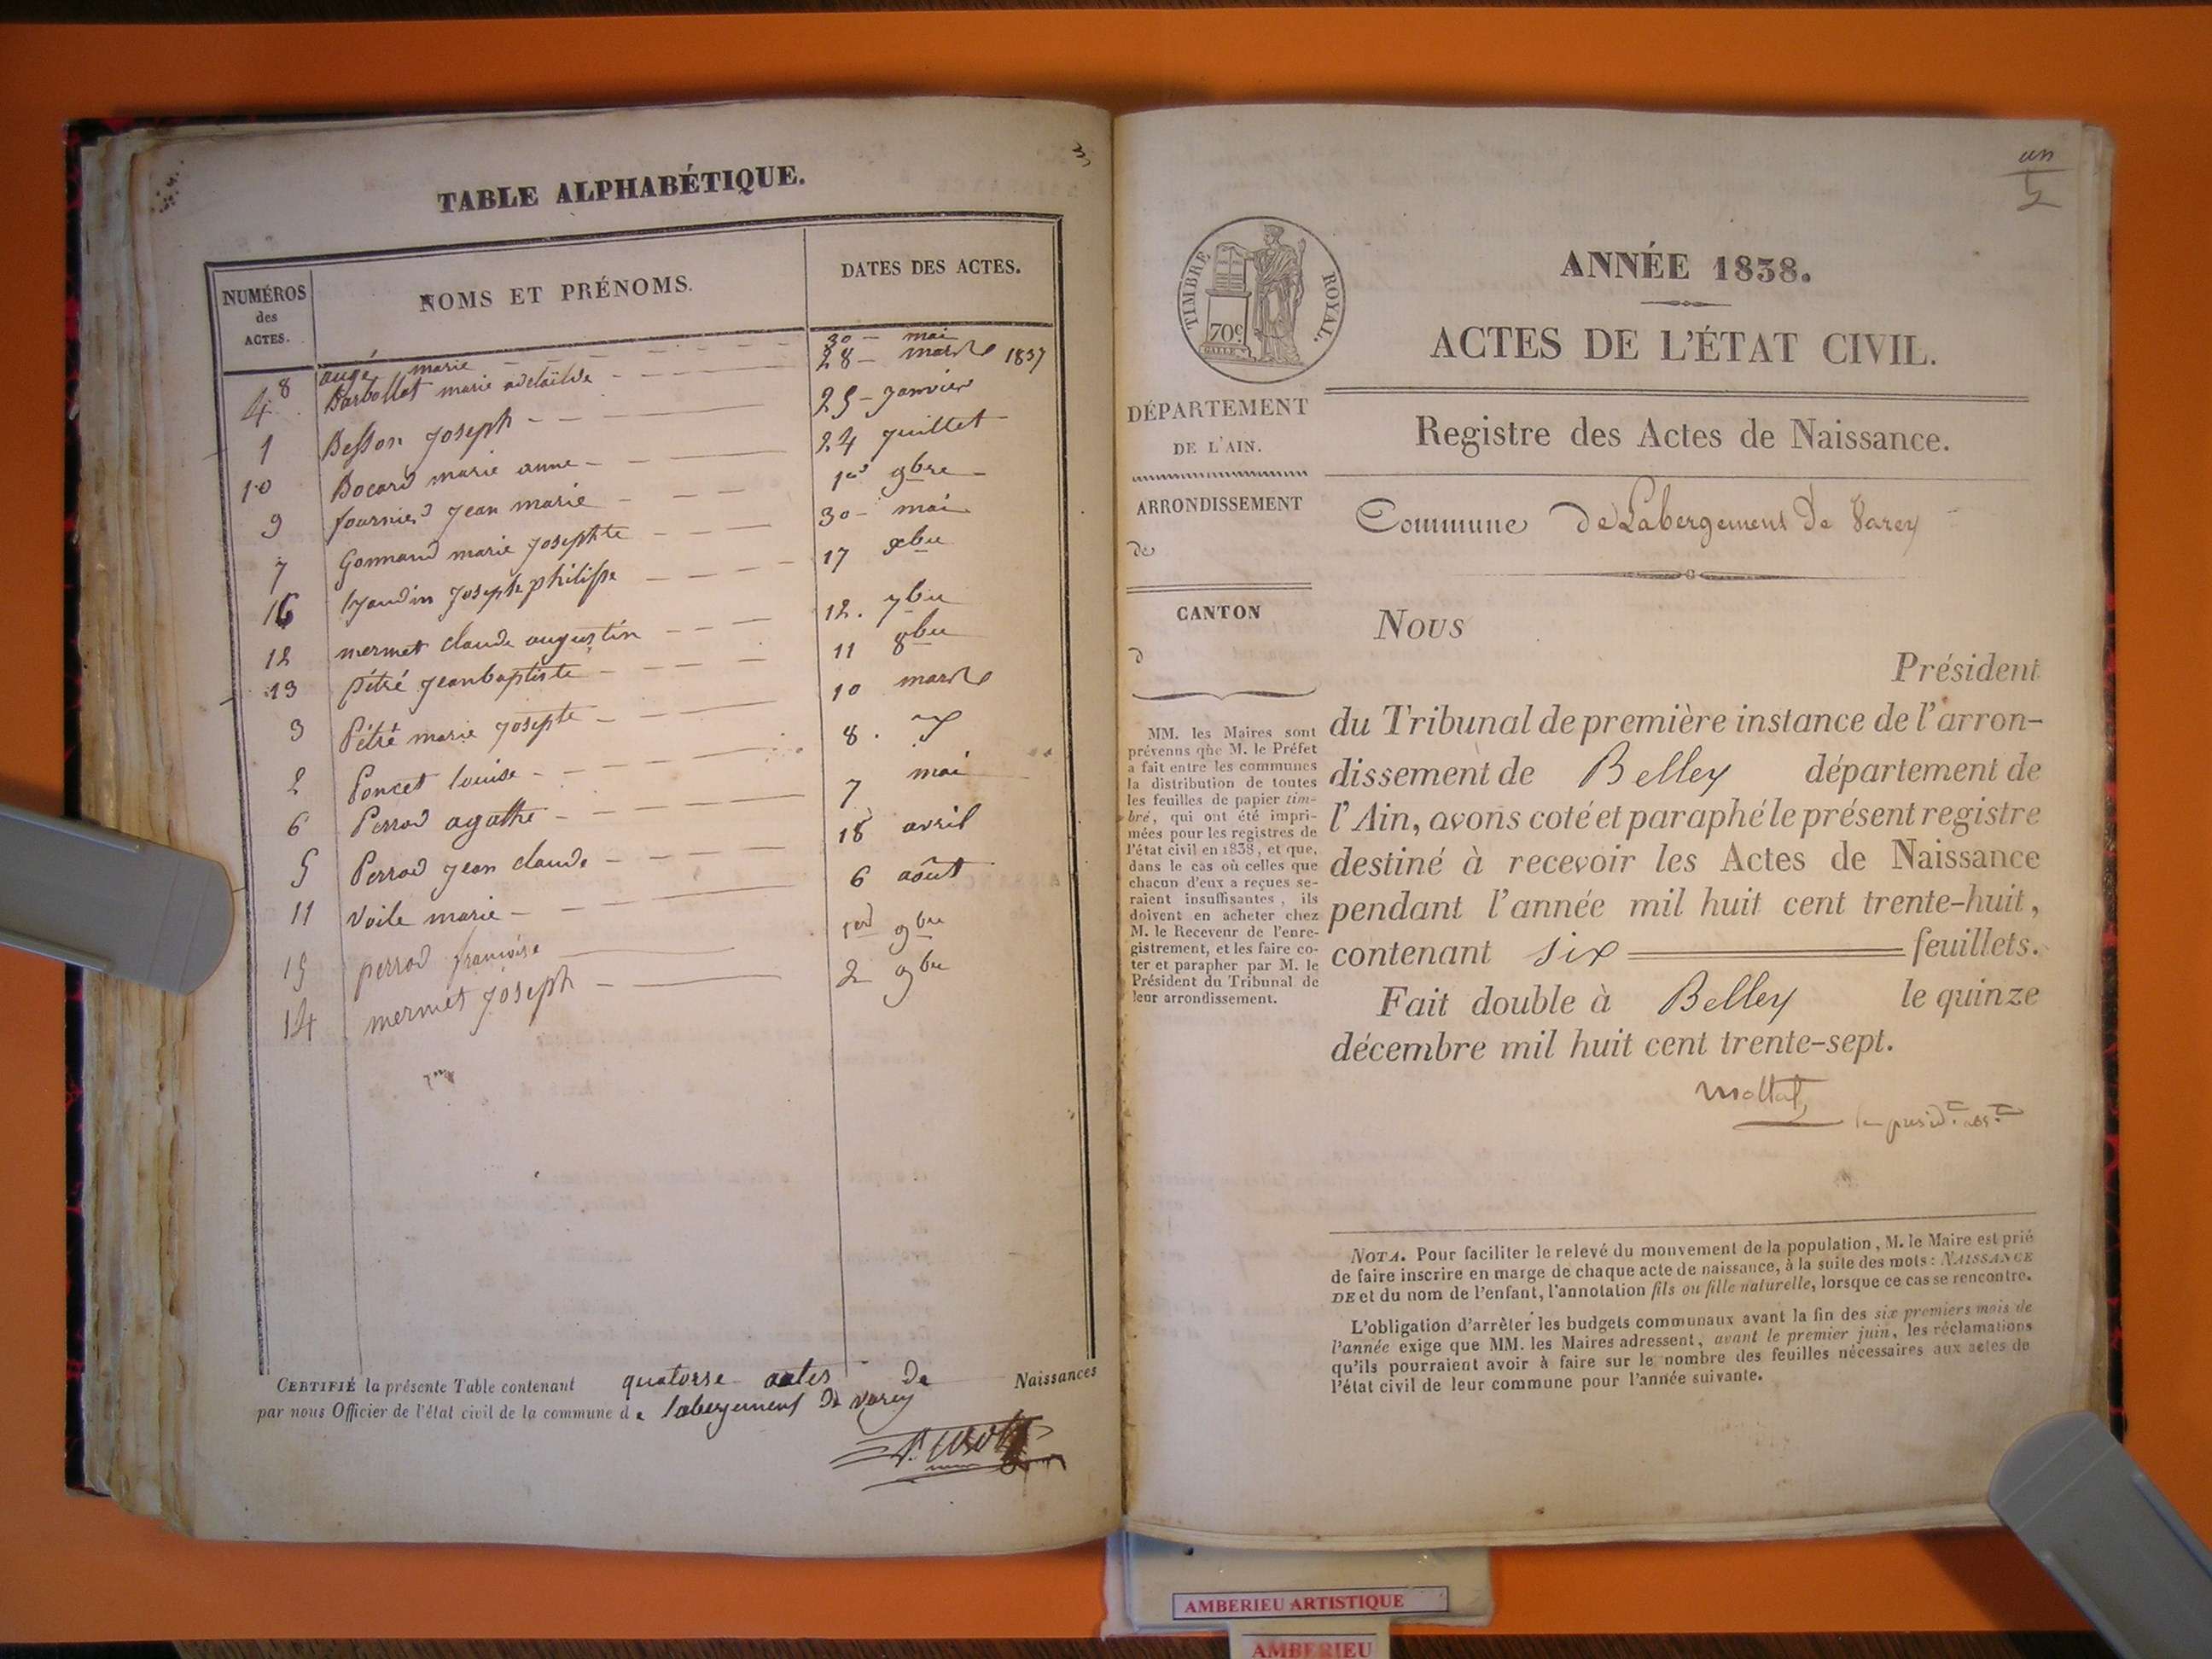 3
TABLE ALPHABÉTIQUE.
NUMÉROS des ACTES. NOMS ET PRÉNOMS. DATES DES ACTES.
8 augé marie 30 mai
4 Barbollat marie adelaïde 28 mars 1837
1 Besson Joseph 25 Janvier
10 Bocard marie anne 24 Juillet
9 fournier Jean marie 1er 9bre
7 Gonnand marie Josephte 30 mai
16 Joseph philippe 17 xbre
12 mermet claude augustin 12. 7bre
13 pétré Jean baptiste 11 8bre
3 Pétré marie Josephte 10 mars
2 Poncet louise 8.
6 Perrod agathe 7 mai
5 Perrod Jean claude 18 avril
11 Voile marie 6 août
15 perrod francoise 1er 9bre
14 mermet Joseph 2 9bre
CERTIFIÉ la présente Table contenant quatorse actes de Naissances
par nous Officier de l'état civil de la commune de labergement de varey
un
ANNÉE 1838.
TIMBRE ROYAL.
70c
ACTES DE L'ÉTAT CIVIL.
DÉPARTEMENT
DE L'AIN.
Registre des Actes de Naissance.
ARRONDISSEMENT
de
Commune de Labergement de Varey
CANTON
d
MM. les Maires sont
prévenus que M. le Préfet
a fait entre les communes
la distribution de toutes
les feuilles de papier tim-
bré, qui ont été impri-
mées pour les registres de
l'état civil en 1838, et que,
dans le cas où celles que
chacun d'eux a reçues se-
raient insuffisantes, ils
doivent en acheter chez
M. le Receveur de l'enre-
gistrement, et les faire co-
ter et parapher par M. le
Président du Tribunal de
leur arrondissement.
Nous
Président
du Tribunal de première instance de l'arron-
dissement de Belley département de
l'Ain, avons coté et paraphé le présent registre
destiné à recevoir les Actes de Naissance
pendant l'année mil huit cent trente-huit,
contenant six feuillets.
Fait double à Belley le quinze
décembre mil huit cent trente-sept.
NOTA. Pour faciliter le relevé du mouvement de la population, M. le Maire est prié
de faire inscrire en marge de chaque acte de naissance, à la suite des mots : NAISSANCE
DE et du nom de l'enfant, l'annotation fils ou fille naturelle, lorsque ce cas se rencontre.
L'obligation d'arrêter les budgets communaux avant la fin des six premiers mois de
l'année exige que MM. les Maires adressent, avant le premier juin, les réclamations
qu'ils pourraient avoir à faire sur le nombre des feuilles nécessaires aux actes de
l'état civil de leur commune pour l'année suivante.
AMBERIEU ARTISTIQUE
AMBERIEU